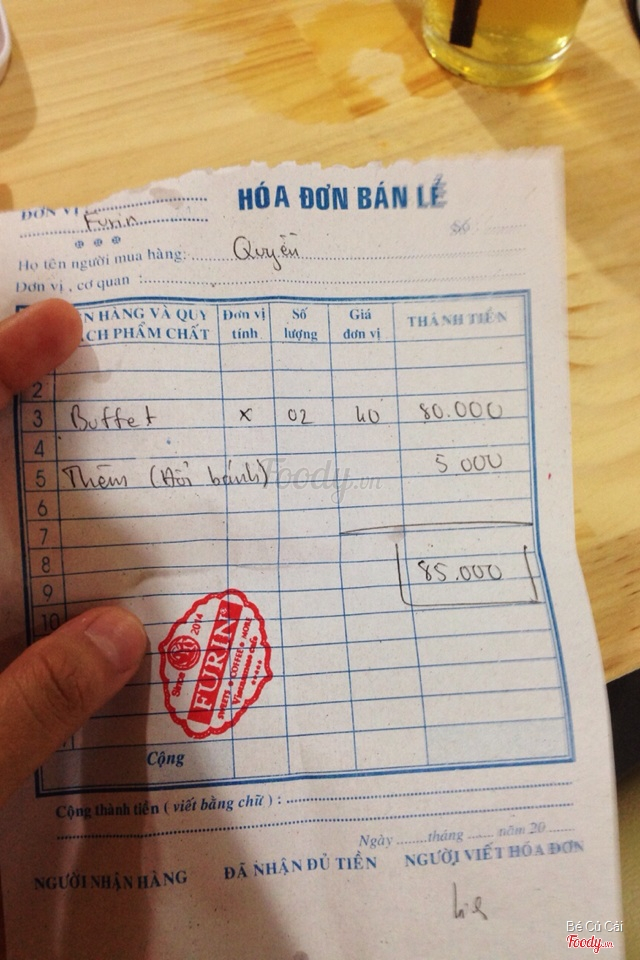 HÓA ĐƠN BÁN LẺ
ĐƠN VỊ
Furin
Số
Họ tên người mua hàng: Quyền
Đơn vị, cơ quan :
N HÀNG VÀ QUY
ÁCH PHẨM CHẤT
Đơn vị
tính
Số
lượng
Giá
đơn vị
THÀNH TIỀN
2
3 Buffet x 02 40 80.000
4
5 Thêm (Đổi bánh) 5 000
6
7
8 85.000
9
10
Foody.vn
Since 2014
FURIN
SWEETS COFFEE & MORE
Vietnamese cafe
Cộng
Cộng thành tiền ( viết bằng chữ ) :
Ngày ........tháng ....... năm 20 .......
NGƯỜI NHẬN HÀNG ĐÃ NHẬN ĐỦ TIỀN NGƯỜI VIẾT HÓA ĐƠN
Bé Củ Cải
Foody.vn